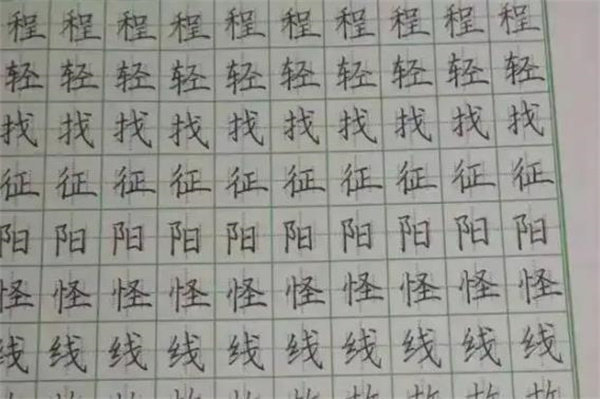 程程程程程程程程程程
轻轻轻轻轻轻轻轻轻轻
找找找找找找找找找找
征征征征征征征征征征
阳阳阳阳阳阳阳阳阳阳
怪怪怪怪怪怪怪怪怪怪
线线线线线线线线线线